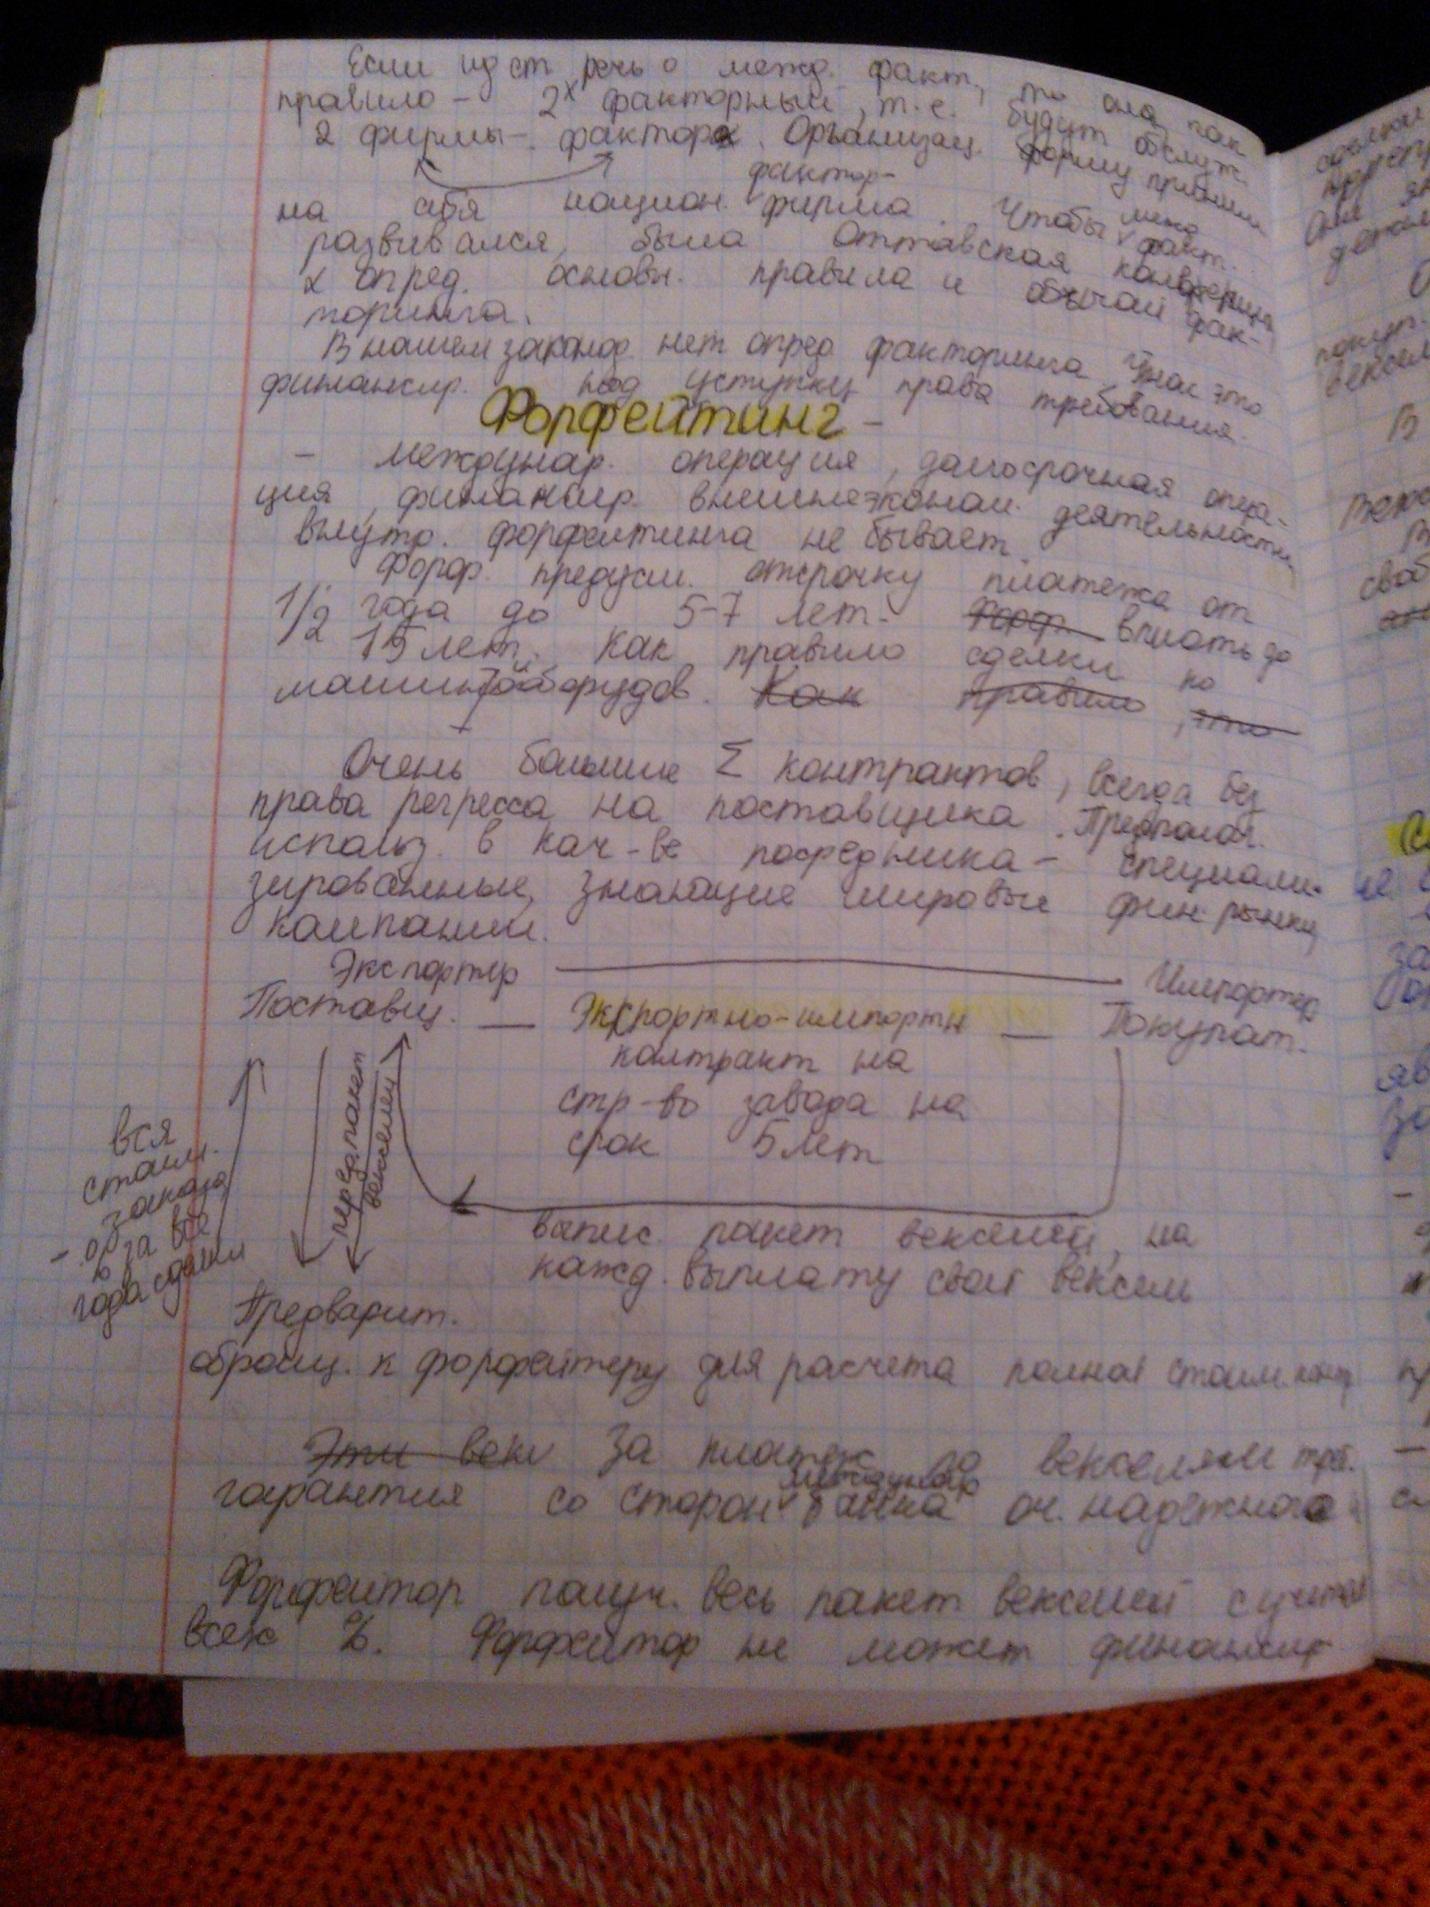 Если идет речь о межд. факт., то она, как
правило - 2х факторный, т.е. будут обслуж.
2 фирмы - фактора. Организац. форму приняли
на себя национ. фактор-фирма. Чтобы межд факт.
развивался, была Оттавская конференция
опред. основн. правила и обычаи фак-
торинга.
В нашем законод. нет опред факторинга. У нас это
финансир. под уступку права требования.
Форфейтинг -
- междунар. операция, долгосрочная опера-
ция, финансир. внешнеэконом. деятельности
внутр. форфейтинга не бывает.
Форф. предусм. отсрочку платежа от
1/2 года до 5-7 лет. Форф. вплоть до
15 лет. Как правило сделки по
оборудов. Как правило, это
Очень большие Σ контрактов, всегда без
права регресса на поставщика. Предполаг.
использ. в кач-ве посредника - специали-
зированные, знающие мировые фин. рынки
компании.
Экспортер Импортер
Поставщ. - Экспортно-импортн - Покупат.
контракт на
стр-во завода на
срок 5 лет
перед. пакет
векселей
вся
стоим.
заказа
за все
года сделки
выпис. пакет векселей, на
кажд. выплату свой вексель
Предварит.
обращ. к форфейтеру для расчета полной стоим. контр
Эти век За платеж по векселям треб.
гарантия со сторон междунар банка оч. надежного
Форфейтор получ. весь пакет векселей с учетом
всех %. Форфейтор не может финансир